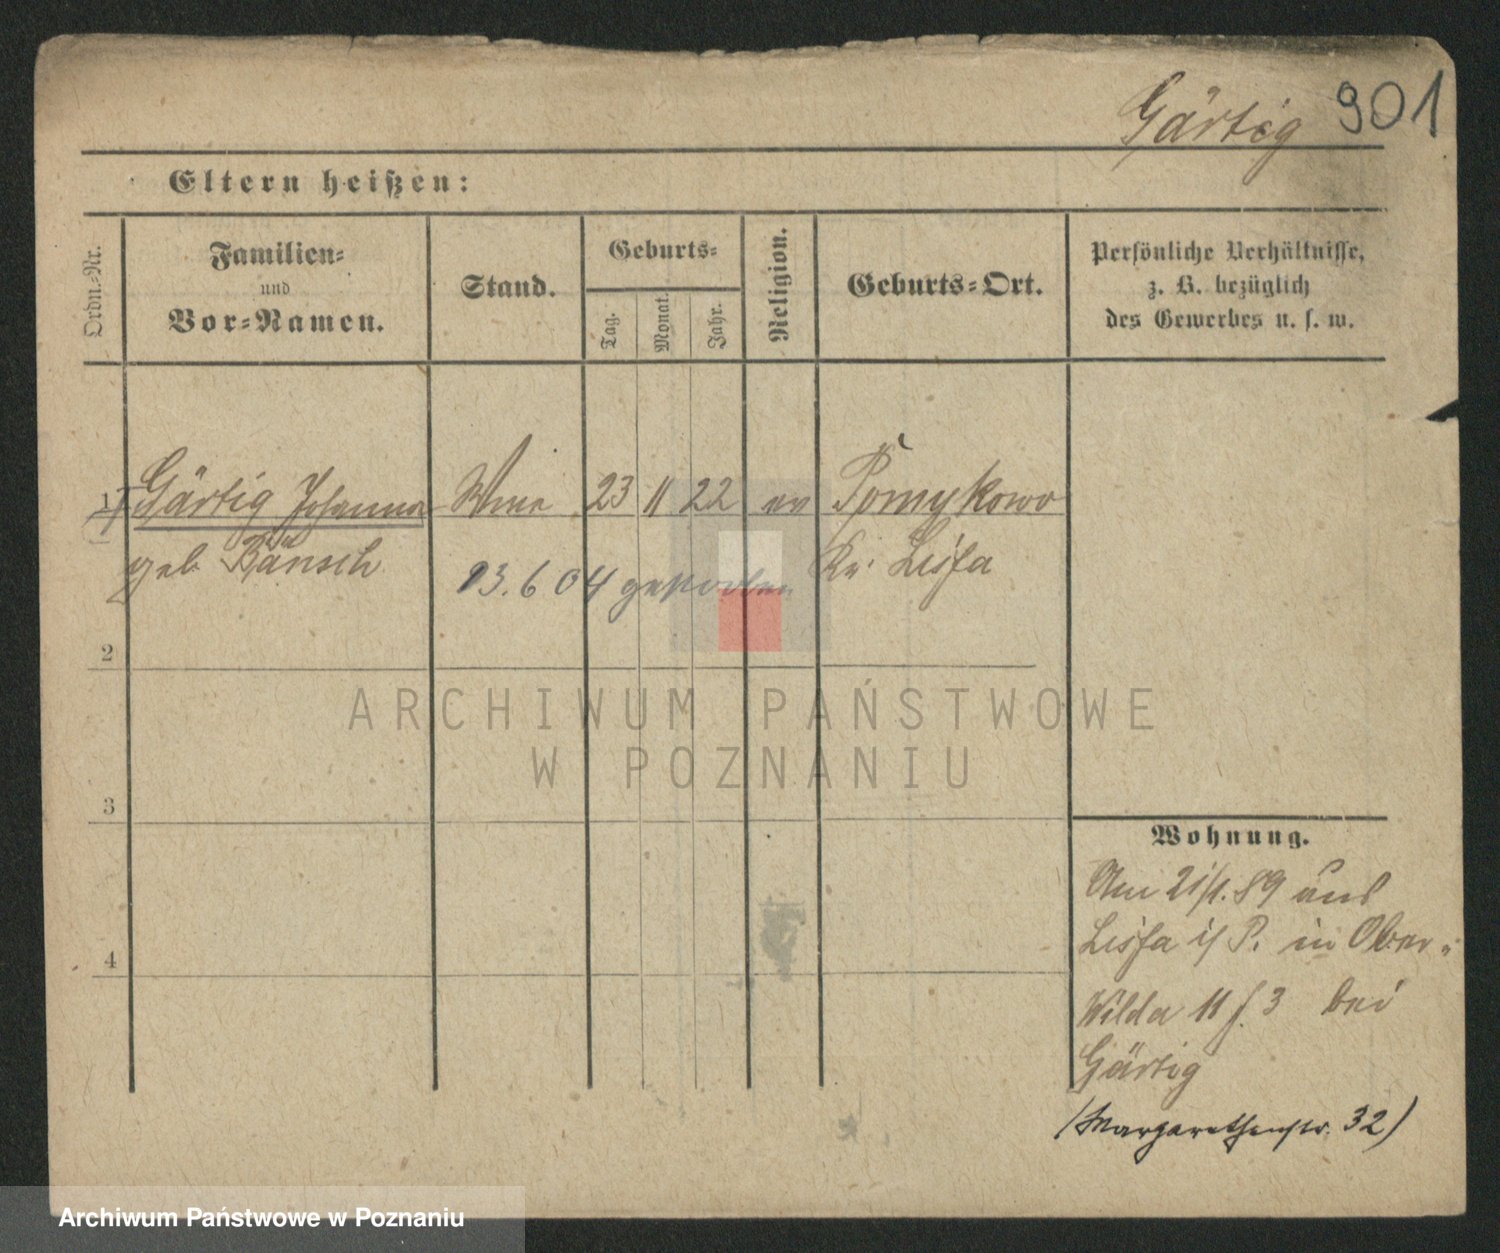 Gärtig 901
Eltern heißen:
Ordn.-Nr.
Familien-
und
Vor-Namen.
Stand.
Geburts-
Tag.
Monat.
Jahr.
Religion.
Geburts-Ort.
Persönliche Verhältnisse,
z. B. bezüglich
des Gewerbes u. s. w.
1 Gärtig Johanna Wwe 23 11 22 ev Pomykowo
geb. Bänsch Kr. Lissa
13.6 04 gestorben
2
3
4
Wohnung.
Am 21/1. 89 aus
Lissa i/P. in Ober-
Wilda 11 f. 3 bei
Gärtig
(Margarethenstr. 32)
ARCHIWUM PAŃSTWOWE
W POZNANIU
Archiwum Państwowe w Poznaniu